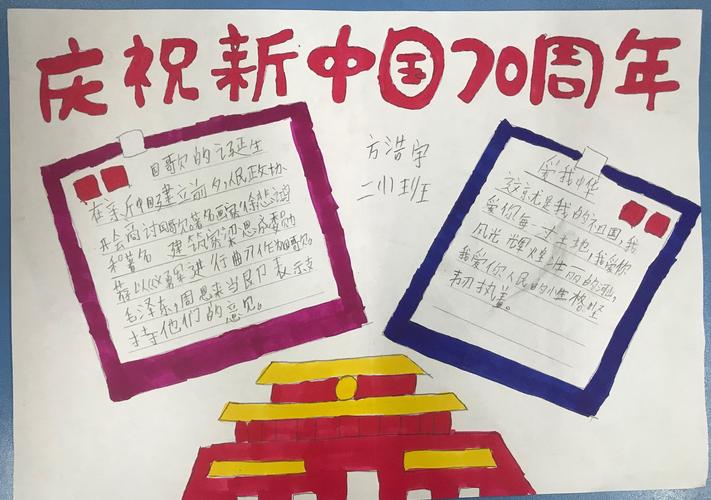 庆祝新中国70周年
国歌的诞生
在新中国建立前夕,人民政协
开会商讨国歌著名画家徐悲鸿
和著名 建筑家梁思成委员力
荐以《义勇军进行曲》作为国歌。
毛泽东,周恩来当即力表示支
持他们的意见。
方浩宇
二(1)班
爱我中华
这就是我的祖国,我
爱你每一寸土地,我爱你
风光 辉煌 壮丽的
我爱你人民的性格坚
韧执着。